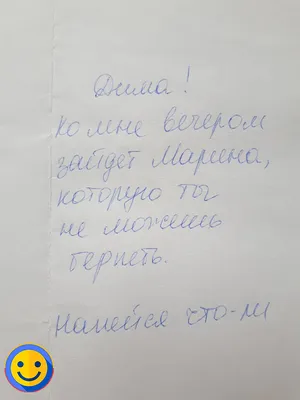 Дима!
Ко мне вечером
зайдет Марина,
которую ты
не можешь
терпеть.
Напейся что-ли